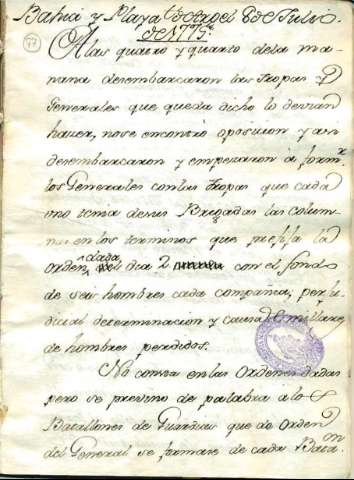 Bahia y Playa de Argel 8 de Julio
de 1775
77
A las quatro y quarto dela ma
ñana desembarcaron las Tropas y
Generales que queda dicho lo devian
hazer, nose encontró oposicion y assi
desembarcaron y empezaron á formr
los Generales conlas Tropas que cada
uno tenia desus Brigadas las colum
nas en los terminos que prefixa la
orden dada del dia 2 con el fondo
de seis hombres cada compañia, perju
dicial determinacion y causa de millares
de hombres perdidos.
No consta en las Ordenes dadas
pero se previno de palabra alos
Batallones de Guardias que de orden
del General se formase de cada Baton